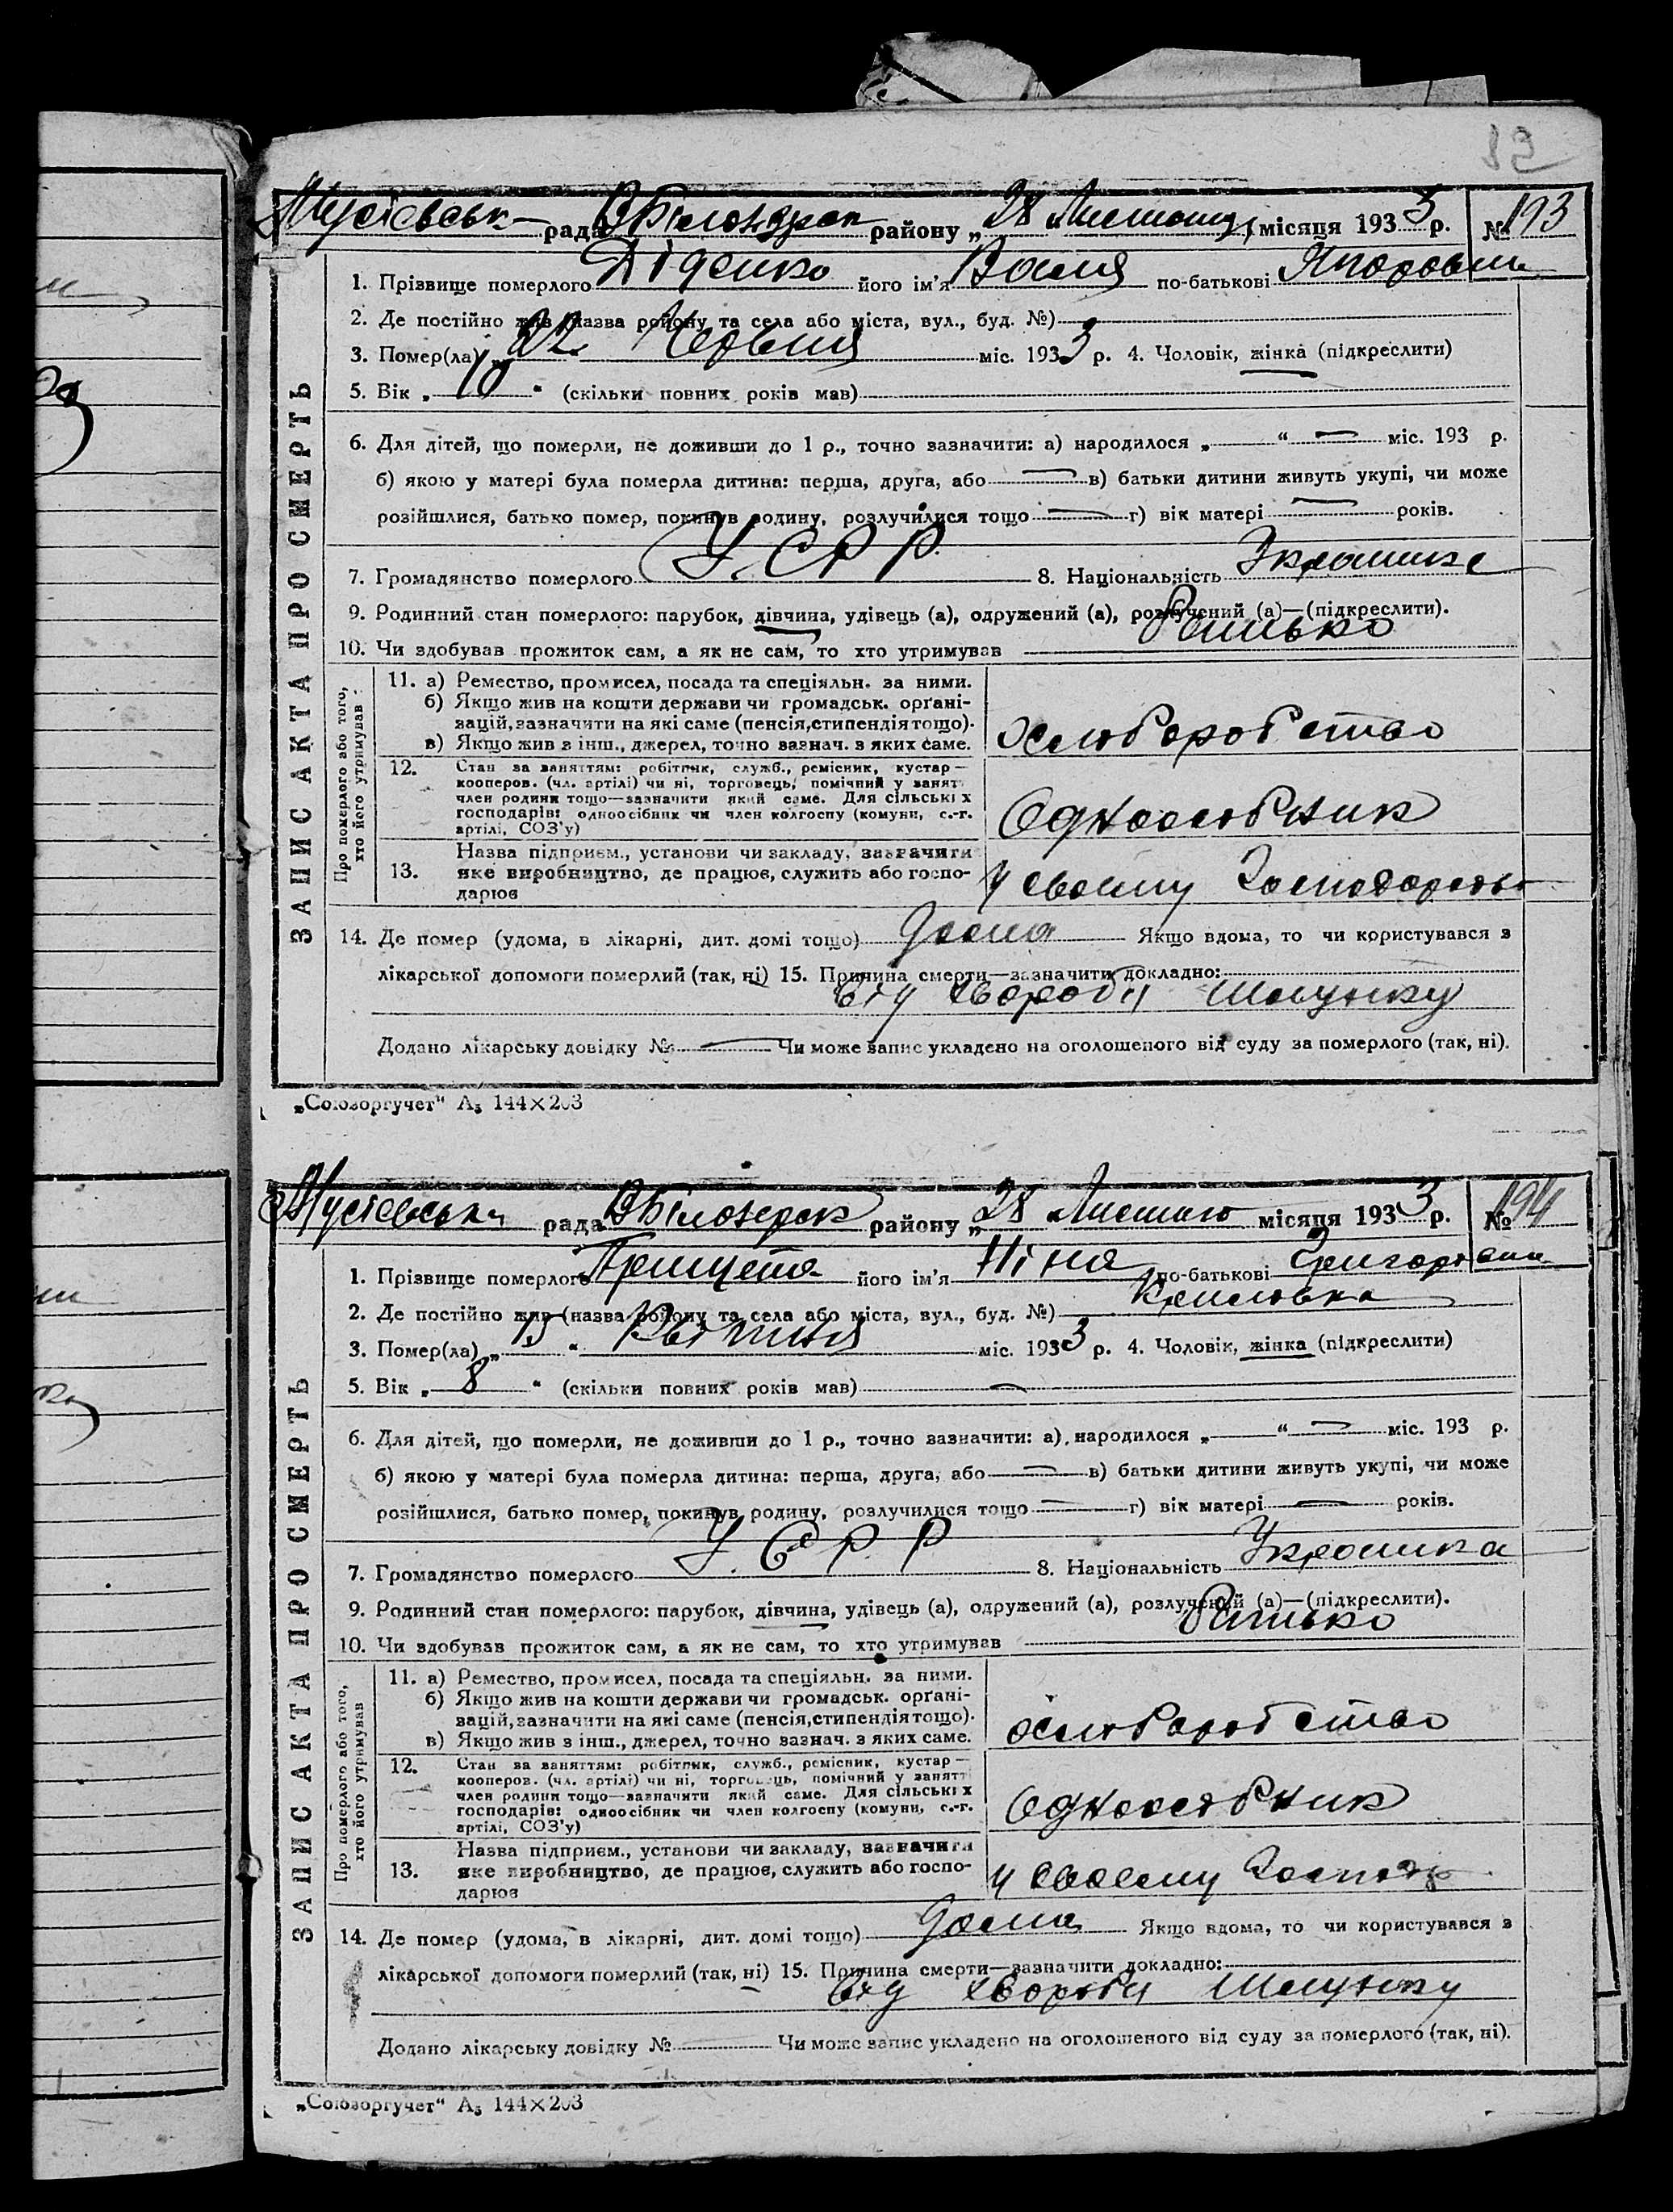 32
рада В Білозерск району „28 Листопад місяця 1933 р. № 193
1. Прізвище померлого Діденко його ім'я Валя по-батькові
2. Де постійно жив (назва району та села або міста, вул., буд. №)
3. Помер(ла) „22 Червня міс. 1933 р. 4. Чоловік, жінка (підкреслити)
5. Вік „ 10 " (скільки повних років мав)
6. Для дітей, що померли, не доживши до 1 р., точно зазначити: а) народилося „ — “ — міс. 193 р.
б) якою у матері була померла дитина: перша, друга, або — в) батьки дитини живуть укупі, чи може
розійшлися, батько помер, покинув родину, розлучилися тощо — г) вік матері — років.
7. Громадянство померлого У.С.Р.Р. 8. Національність Украинка
9. Родинний стан померлого: парубок, дівчина, удівець (а), одружений (а), розлучений (а)—(підкреслити).
10. Чи здобував прожиток сам, а як не сам, то хто утримував Батько
ЗАПИС АКТА ПРО СМЕРТЬ
Про померлого або того,
хто його утримував
11. а) Ремество, промисел, посада та спеціяльн. за ними.
б) Якщо жив на кошти держави чи громадськ. орґані-
зацій, зазначити на які саме (пенсія, стипендія тощо).
в) Якщо жив з інш., джерел, точно зазнач. з яких саме.
хлюборобство
12. Стан за заняттям: робітник, служб., ремісник, кустар—
кооперов. (чл. артілі) чи ні, торговець, помічний у занят.
член родини тощо—зазначити який саме. Для сільських
господарів: одноосібник чи член колгоспу (комуни, с.-г.
артілі, СОЗ'у)
Одноособник
Назва підприєм., установи чи закладу, зазначити
13. яке виробництво, де працює, служить або госпо-
дарює
У своему Господарстві
14. Де помер (удома, в лікарні, дит. домі тощо) дома Якщо вдома, то чи користувався з
лікарської допомоги померлий (так, ні) 15. Причина смерти—зазначити докладно:
від хвороби шлунку
Додано лікарську довідку № — Чи може запис укладено на оголошеного від суду за померлого (так, ні).
„Союзоргучет“ А₅ 144×203
рада В Білозерск району „28 Листопад місяця 1933 р. № 194
1. Прізвище померлого Прищепа його ім'я Ніна по-батькові Григоровни
2. Де постійно жив (назва району та села або міста, вул., буд. №) Крилівка
3. Помер(ла) „ 15 “ Квітня міс. 1933 р. 4. Чоловік, жінка (підкреслити)
5. Вік „ 8 " (скільки повних років мав) —
6. Для дітей, що померли, не доживши до 1 р., точно зазначити: а) народилося „ — “ — міс. 193 р.
б) якою у матері була померла дитина: перша, друга, або — в) батьки дитини живуть укупі, чи може
розійшлися, батько помер, покинув родину, розлучилися тощо — г) вік матері — років.
7. Громадянство померлого У.С.Р.Р 8. Національність Украинка
9. Родинний стан померлого: парубок, дівчина, удівець (а), одружений (а), розлучений (а)—(підкреслити).
10. Чи здобував прожиток сам, а як не сам, то хто утримував Батько
ЗАПИС АКТА ПРО СМЕРТЬ
Про померлого або того,
хто його утримував
11. а) Ремество, промисел, посада та спеціяльн. за ними.
б) Якщо жив на кошти держави чи громадськ. орґані-
зацій, зазначити на які саме (пенсія, стипендія тощо).
в) Якщо жив з інш., джерел, точно зазнач. з яких саме.
хлюборобство
12. Стан за заняттям: робітник, служб., ремісник, кустар—
кооперов. (чл. артілі) чи ні, торговець, помічний у занятті
член родини тощо—зазначити який саме. Для сільських
господарів: одноосібник чи член колгоспу (комуни, с.-г.
артілі, СОЗ'у)
Одноособник
Назва підприєм., установи чи закладу, зазначити
13. яке виробництво, де працює, служить або госпо-
дарює
У своему Господр
14. Де помер (удома, в лікарні, дит. домі тощо) дома Якщо вдома, то чи користувався з
лікарської допомоги померлий (так, ні) 15. Причина смерти—зазначити докладно:
від хвороби шлунку
Додано лікарську довідку № Чи може запис укладено на оголошеного від суду за померлого (так, ні).
„Союзоргучет“ А₅ 144×203